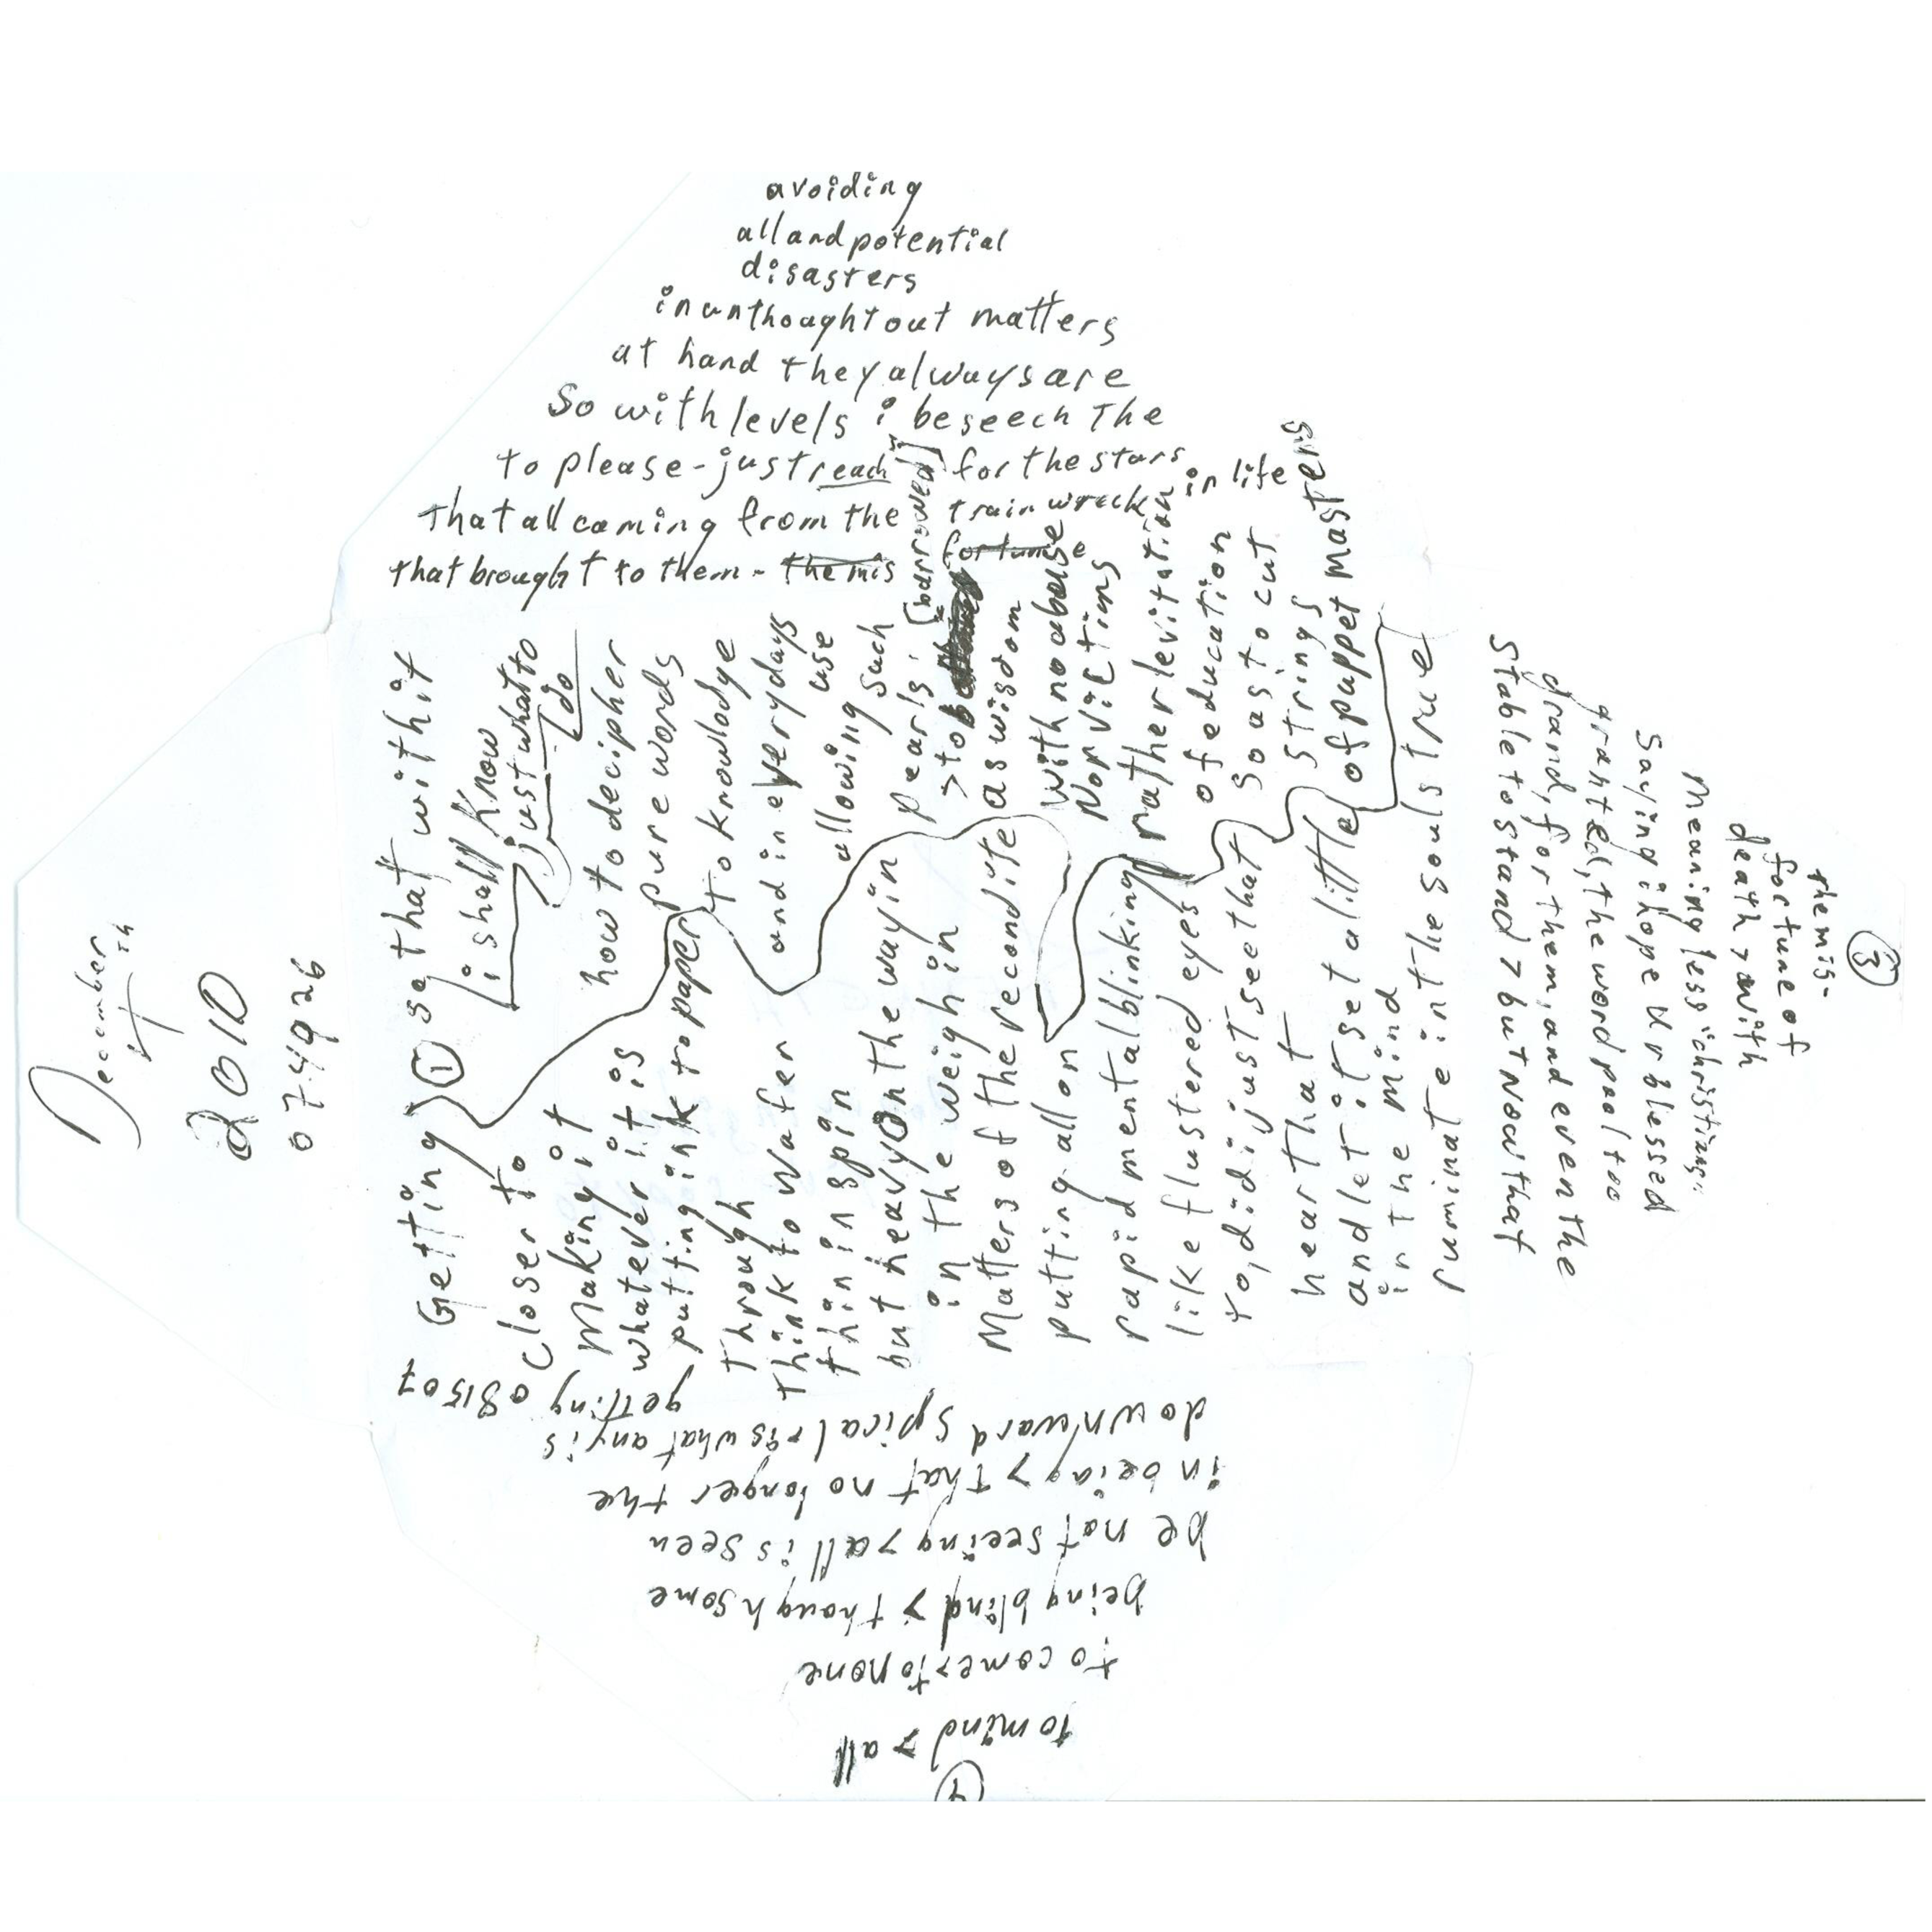 December
4th
2010
074926
Getting
closer to
Making it
whatever it is
putting ink to paper
through
think to wafer
thin in spin
but heavy on the way in
in the weigh in
Matters of the recondite
putting all on
rapid mental blinking
like flustered eyes
to, did i just see that
hear that
and let it set a little
in the mind
ruminate in the soul strata
①
so that with it
i shall know
just what to
do
how to decipher
pure words
to knowledge
and in everydays
use
allowing such
pearls.
> to b
[borrowed]
as wisdom
with no abuse
No victims
rather levitation
of education
so as to cut
strings
of puppet masters
avoiding
all and potential
disasters
in unthought out matters
at hand they always are
So with levels i beseech The
to please-just reach for the stars
in life
that all coming from the train wreck
that brought to them - the mis fortune
③
the mis-
fortune of
death > with
Meaningless "christians"
Saying i hope Ur blessed
granted, the word pool too
grand, for them, and even the
Stable to stand > but Now that
to mind > all
to come > to none
being blind > though some
be not seeing > all is seen
in being > that no longer the
downward spical > is what any is
getting 081507